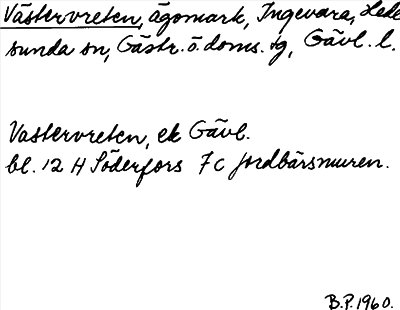 Västervreten, ägomark, Ingevara, Hede
sunda sn, Gästr. ö. doms. lg, Gävl. l.
Vastervreten, ek Gävl.
bl. 12 H Söderfors 7 c Jordbärsmuren.
B.P. 1960.